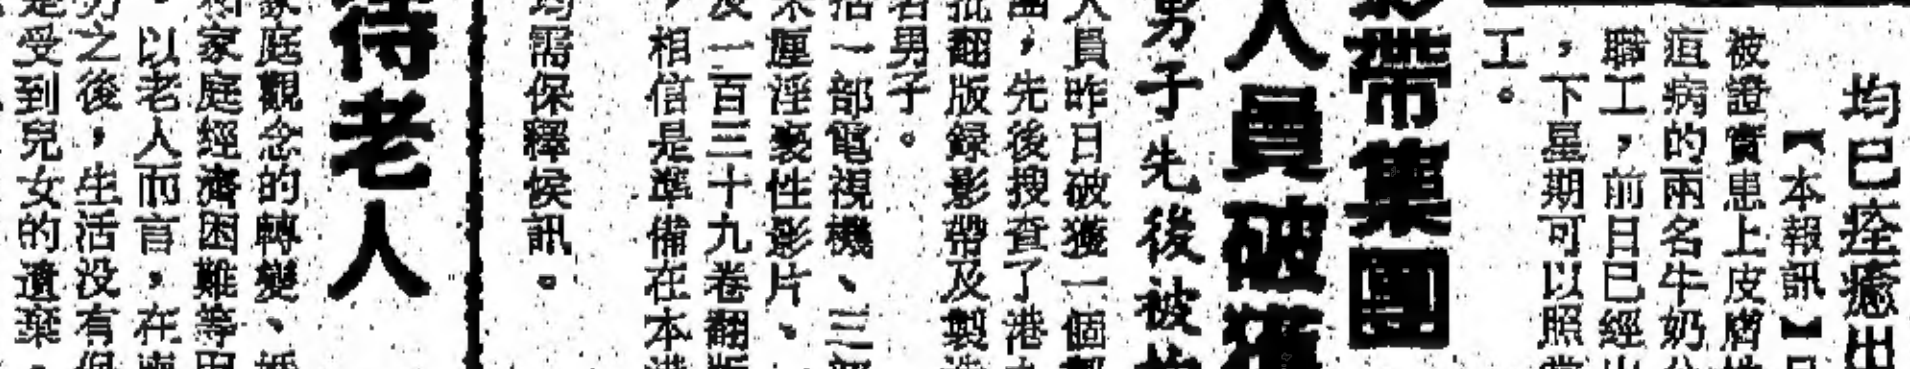 均已痊癒出
【本報訊】
被證實患上皮膚
疽病的兩名牛奶公
職工，前日已經出
，下星期可以照常
工。
影帶集團
人員破獲
男子先後被
人員昨日破獲一個
，先後搜查了港九
批翻版錄影帶及製造
名男子。
括一部電視機、三部
米厘淫褻性影片、
及一百三十九卷翻版
，相信是準備在本港
均需保釋候訊。
待老人
家庭觀念的轉變、
家庭經濟困難等
，以老人而言，在
之後，生活没有保
是受到兒女的遺棄，